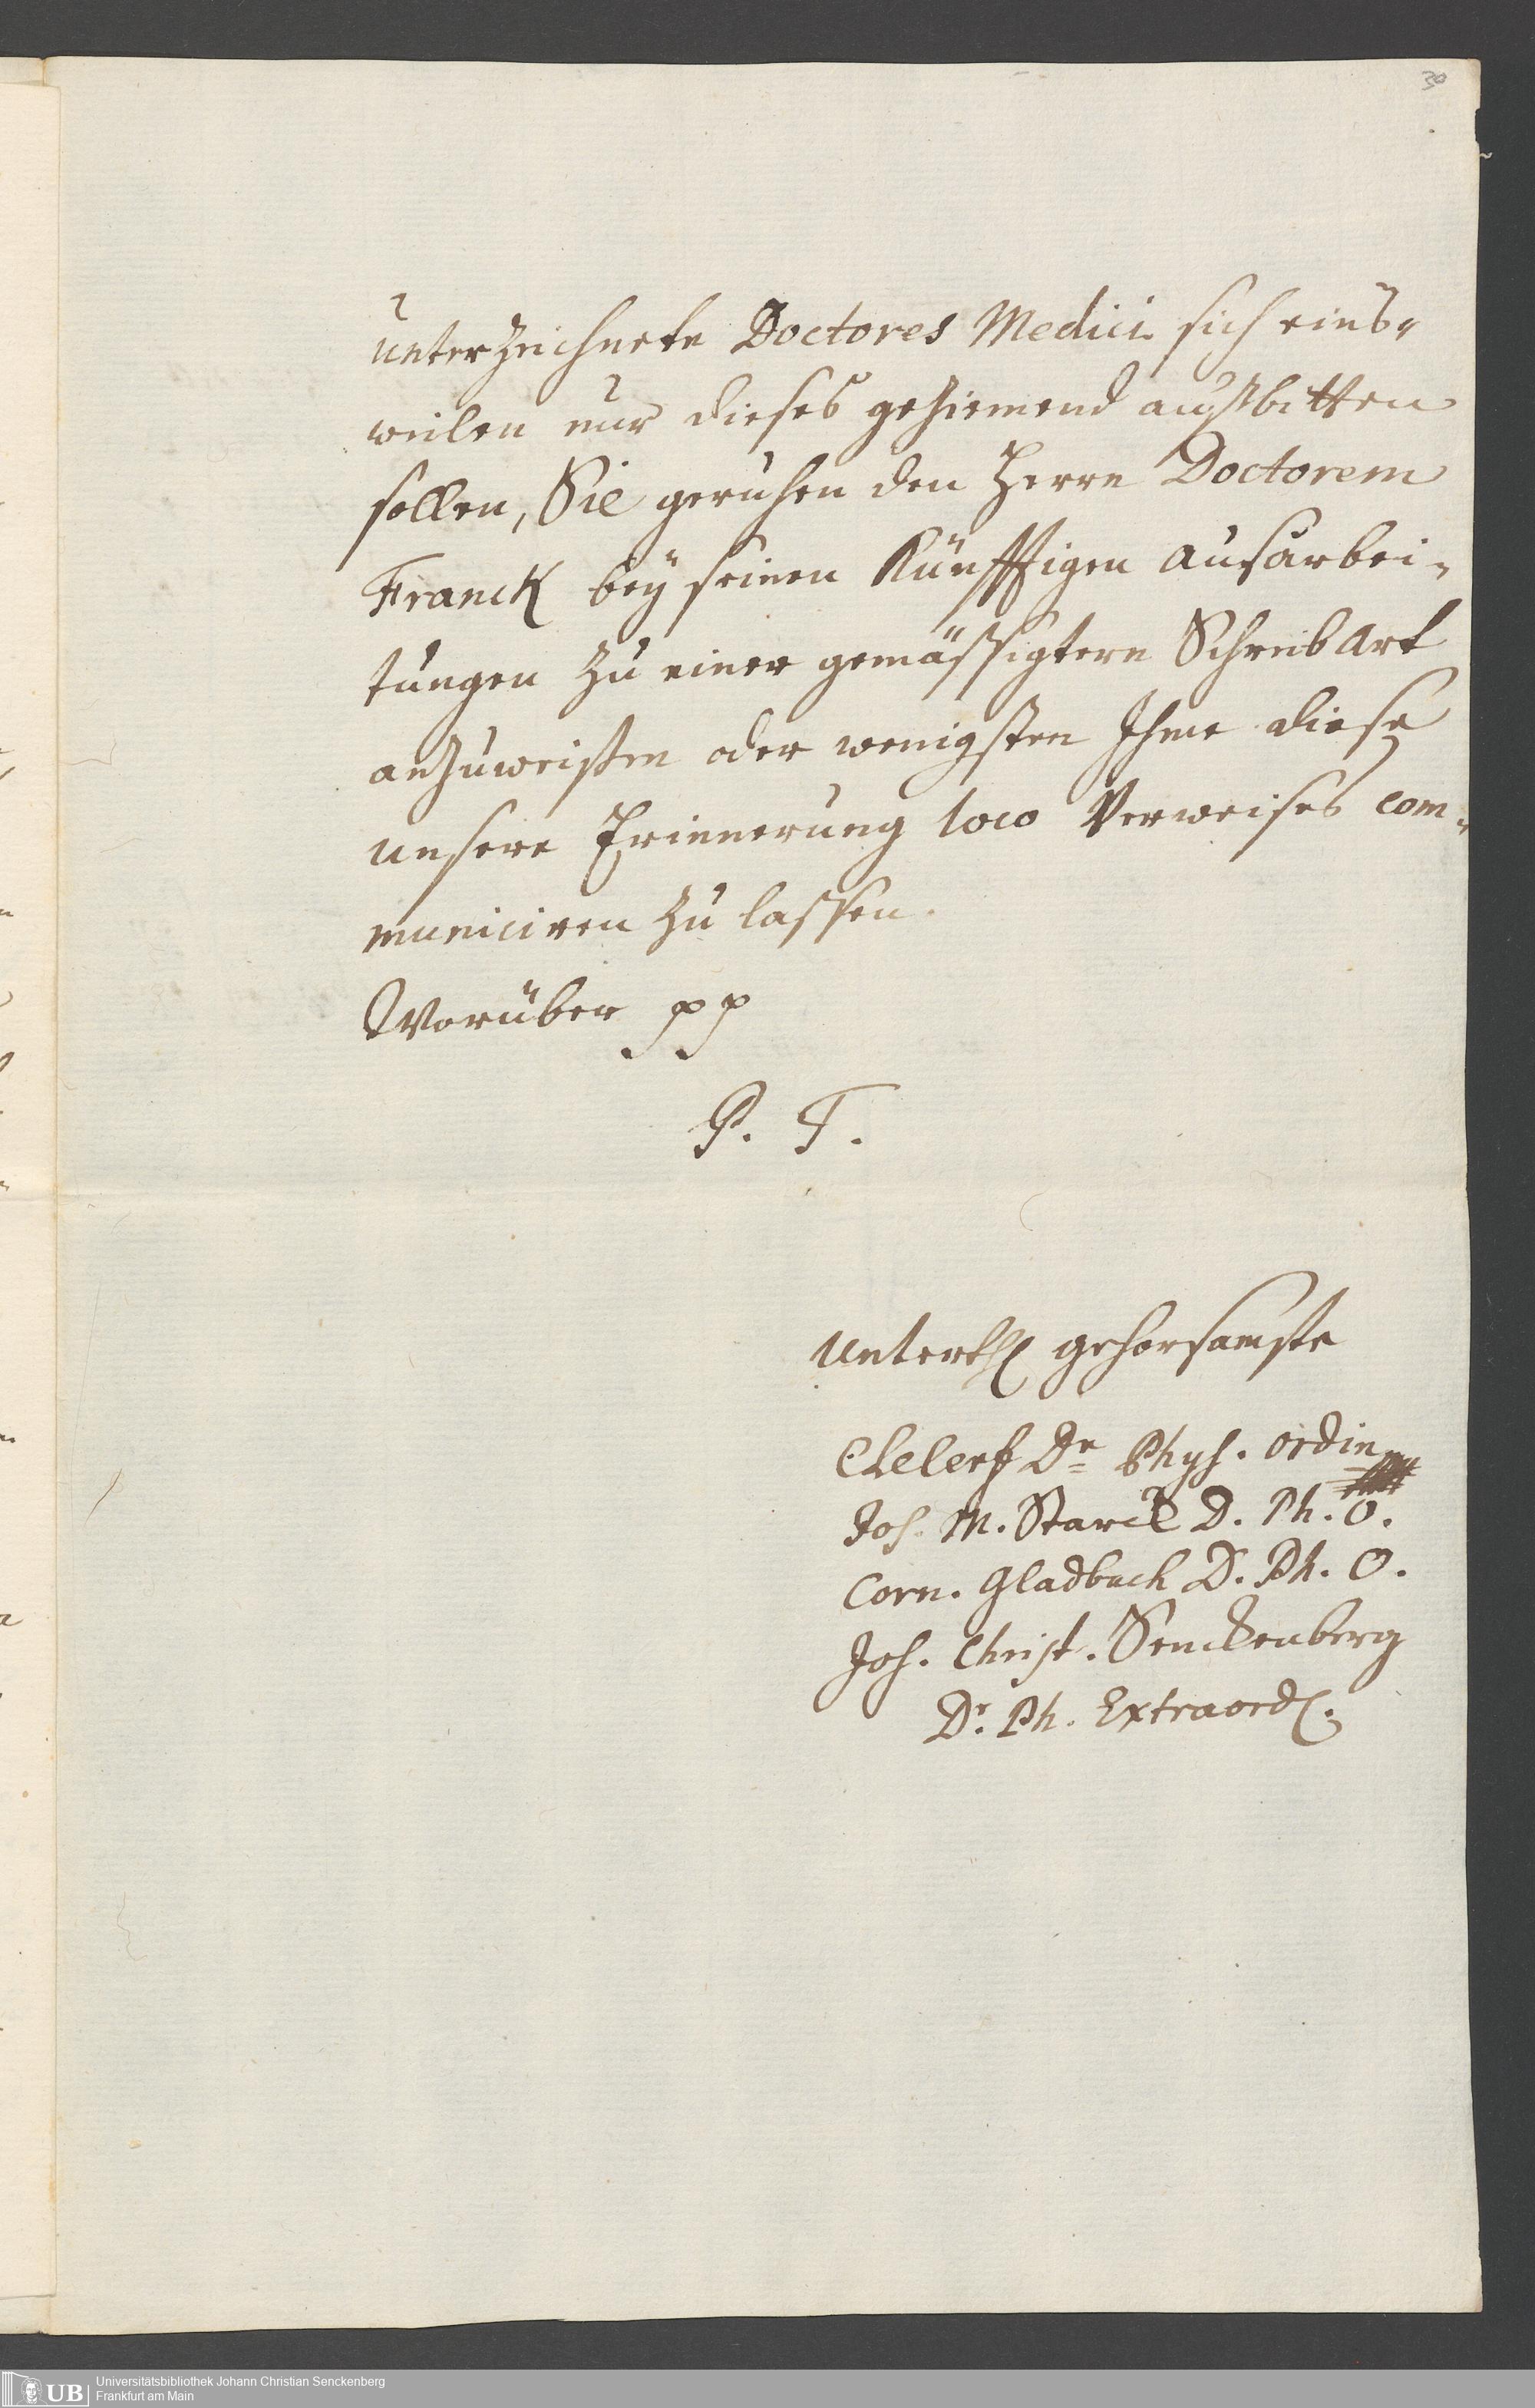 30
unterzeichnete Doctores Medici sich eins-
weilen nur dieses geziemend außbitten
sollen, Sie geruhen den Herrn Doctorem
Franck bey seinen Künfftigen ausarbei-
tungen zu einer gemässigtern Schreibart
anzuweißen oder wenigsten Ihme diese
unsere Erinnerung loco Verweises com-
municiren zu lassen.
Worüber pp
P. T.
unterth gehorsamste
Dr Phys. ordin
Joh. M. Starck D. Ph. O.
Corn. Gladbach D. Ph. O.
Joh. Christ. Senckenberg
Dr. Ph. Extraord.
UB Universitätsbibliothek Johann Christian Senckenberg
Frankfurt am Main